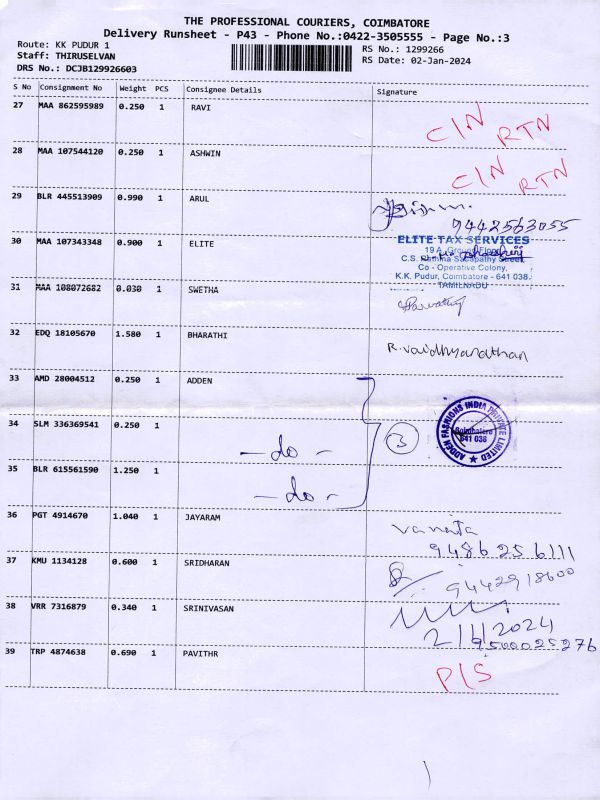 THE PROFESSIONAL COURIERS, COIMBATORE
Delivery Runsheet - P43 - Phone No.:0422-3505555 - Page No.:3
Route: KK PUDUR 1
RS No.: 1299266
Staff: THIRUSELVAN
RS Date: 02-Jan-2024
DRS No.: DCJB129926603
S No Consignment No Weight PCS Consignee Details Signature
27 MAA 862595989 0.250 1 RAVI C/N RTN
28 MAA 107544120 0.250 1 ASHWIN C/N RTN
29 BLR 445513909 0.990 1 ARUL
9442563055
30 MAA 107343348 0.900 1 ELITE
ELITE TAX SERVICES
19 A, Ground Floor
C.S. Street,
Co - Operative Colony,
K.K. Pudur, Coimbatore - 641 038.
TAMILNADU
31 MAA 108072682 0.030 1 SWETHA
32 EDQ 18105670 1.580 1 BHARATHI R. Vaidhyanathan
33 AMD 28004512 0.250 1 ADDEN
34 SLM 336369541 0.250 1 - do - 3
ADDEN FASHIONS INDIA PRIVATE LIMITED
Coimbatore
641 038
35 BLR 615561590 1.250 1 - do -
36 PGT 4914670 1.040 1 JAYARAM
9486256111
37 KMU 1134128 0.600 1 SRIDHARAN 9442918600
38 VRR 7316879 0.340 1 SRINIVASAN
2/1/2024
9500025276
39 TRP 4874638 0.690 1 PAVITHR P/S